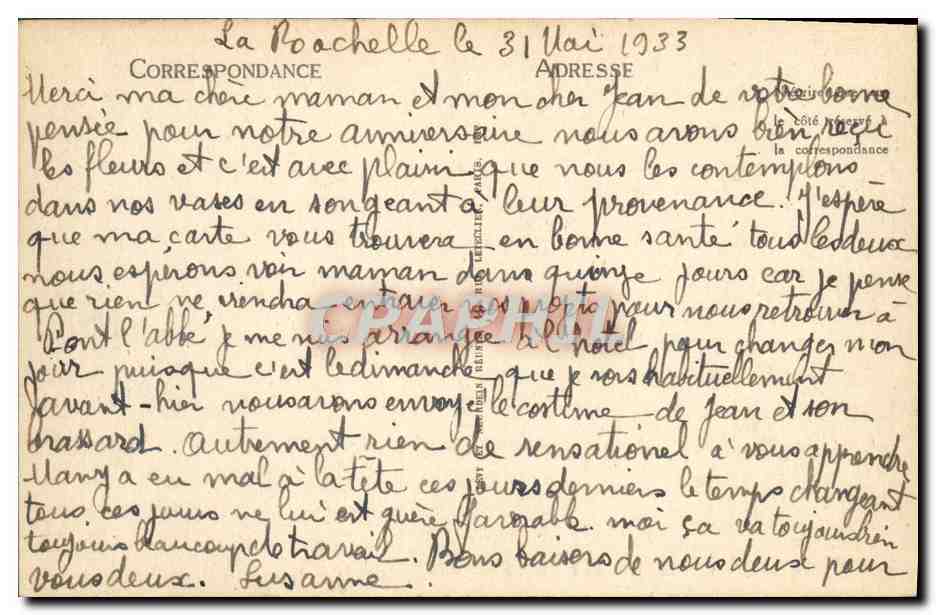 La Roochelle le 31 Mai 1933
CORRESPONDANCE
ADRESSE
Merci ma chère maman et mon cher Jean de votre bonne
pensée pour notre anniversaire nous avons bien reçu
le côté réservé à
les fleurs et c'est avec plaisir que nous les contemplons
la correspondance
dans nos vases en songeant à leur provenance. J'espère
que ma carte vous trouvera en bonne santé tous les deux
nous espérons voir maman dans quinze jours car je pense
que rien ne viendra entraver nos projets pour nous retrouver à
CPAPHIL
Pont l'abbé, je me suis arrangée à l'hotel pour changer mon
jour puisque c'est le dimanche que je sors habituellement
Javant-hier nous avons envoyé le costume de Jean et son
brassard. Autrement rien de sensationel à vous apprendre
Many a eu mal à la tête ces jours derniers le temps changeant
tous ces jours ne lui est guère favorable. moi ça va toujours bien
toujours beaucoup de travail. Bons baisers de nous deux pour
vous deux. Susanne.